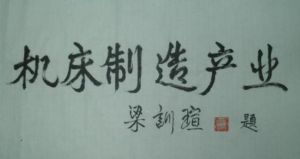 机床制造产业
梁訓瑄 题